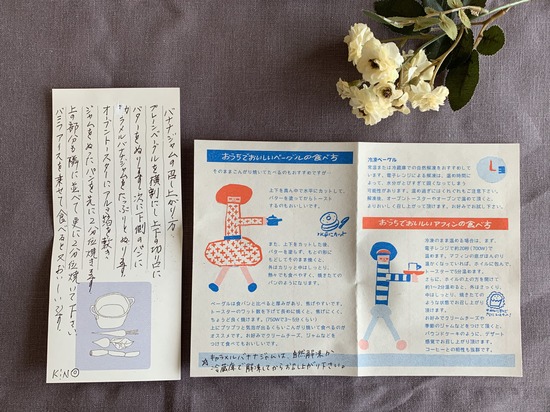 バナナジャムの召し上がり方
プレーンベーグルを横割にし上下の切り口に
バターをぬります。次に下側のパンに
キャラメルバナナジャムをたっぷりとぬります。
オーブントースターにアルミ箔を敷き
ジャムをぬったパンを先に2分位焼きます。
上の部分も隣に並べて更に2分位焼いて下さい。
バニラアイスを乗せて食べると又おいしいです。
KiN
おうちでおいしいベーグルの食べ方
そのままこんがり焼いてたべるのもおすすめですが…
上下を真ん中で水平にカットして、
バターを塗ってからトースト
するのもおいしいです。
また、上下をカットした後、
バターも塗らず、もとの形に
もどしてそのまま焼くと、
外はカリっと中はしっとり、
熱々でも食べやすく、焼きたての
パンのようになります。
ベーグルは食パンと比べると厚みがあり、焦げやすいです。
トースターのワット数を下げて長めに焼くと、焦げにくく、
ちょうど良く焼けます。(750Wで3〜5分くらい)
上にプツプツと気泡が出るくらいこんがり焼いて食べるのが
オススメです。お好みでクリームチーズ、ジャムなどを
つけて食べてもおいしいです。
キャラメルバナナジャムは、自然解凍か
冷蔵庫で解凍してからお召し上がり下さい。
冷凍ベーグル
常温または冷蔵庫での自然解凍をおすすめして
います。電子レンジによる解凍は、温め時間に
よって、水分がとびすぎて固くなってしまう
可能性があります。温めすぎにはくれぐれもご注意下さい。
解凍後、オーブントースターやオーブンで温めて頂くと、
こんがりとして召し上がって頂けます。お好みでお試し下さい。
おうちでおいしいマフィンの食べ方
冷凍のまま温める場合は、まず、
電子レンジで約20秒(700W)で
温めます。マフィンの底がほんのり
温かくなっていれば、ホイルに包んで、
トースターで5分温めます。
さらに、ホイルの上の方を開けて
約1〜2分温めると、外はさっくり、
中はしっとり、焼きたての
ような状態でお召し上がり
頂けます。
お好みでクリームチーズや
季節のジャムなどをつけて頂くと、
パウンドケーキのように、デザート
感覚でお召し上がり頂けます。
コーヒーとの相性も抜群です。